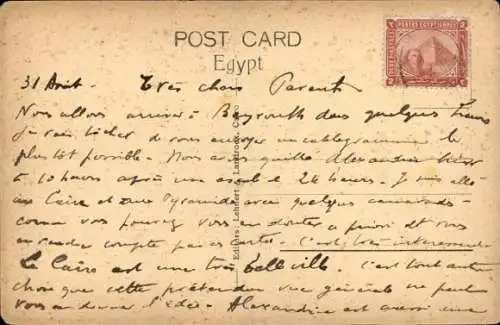 POST CARD
Egypt
POSTES EGYPTIENNES
31 Août. Très chers Parents
Nous allons arriver à Beyrouth dans quelques heures
je vais tâcher de vous envoyer un cablogramme le
plus tôt possible. Nous avons quitté Alexandrie hier
à 10 heures après un arrêt de 24 heures. Je suis allé
au Caire et aux Pyramides avec quelques camarades
comme vous pouvez vous en douter a priori et vous
en rendre compte par les cartes. c'est très intéressant
Le Caire est une très belle ville. C'est tout autre
chose que cette prétendue vue générale ne peut
vous en donner l'idée. Alexandrie est aussi une
Editeurs: Lehnert & Landrock, Cairo